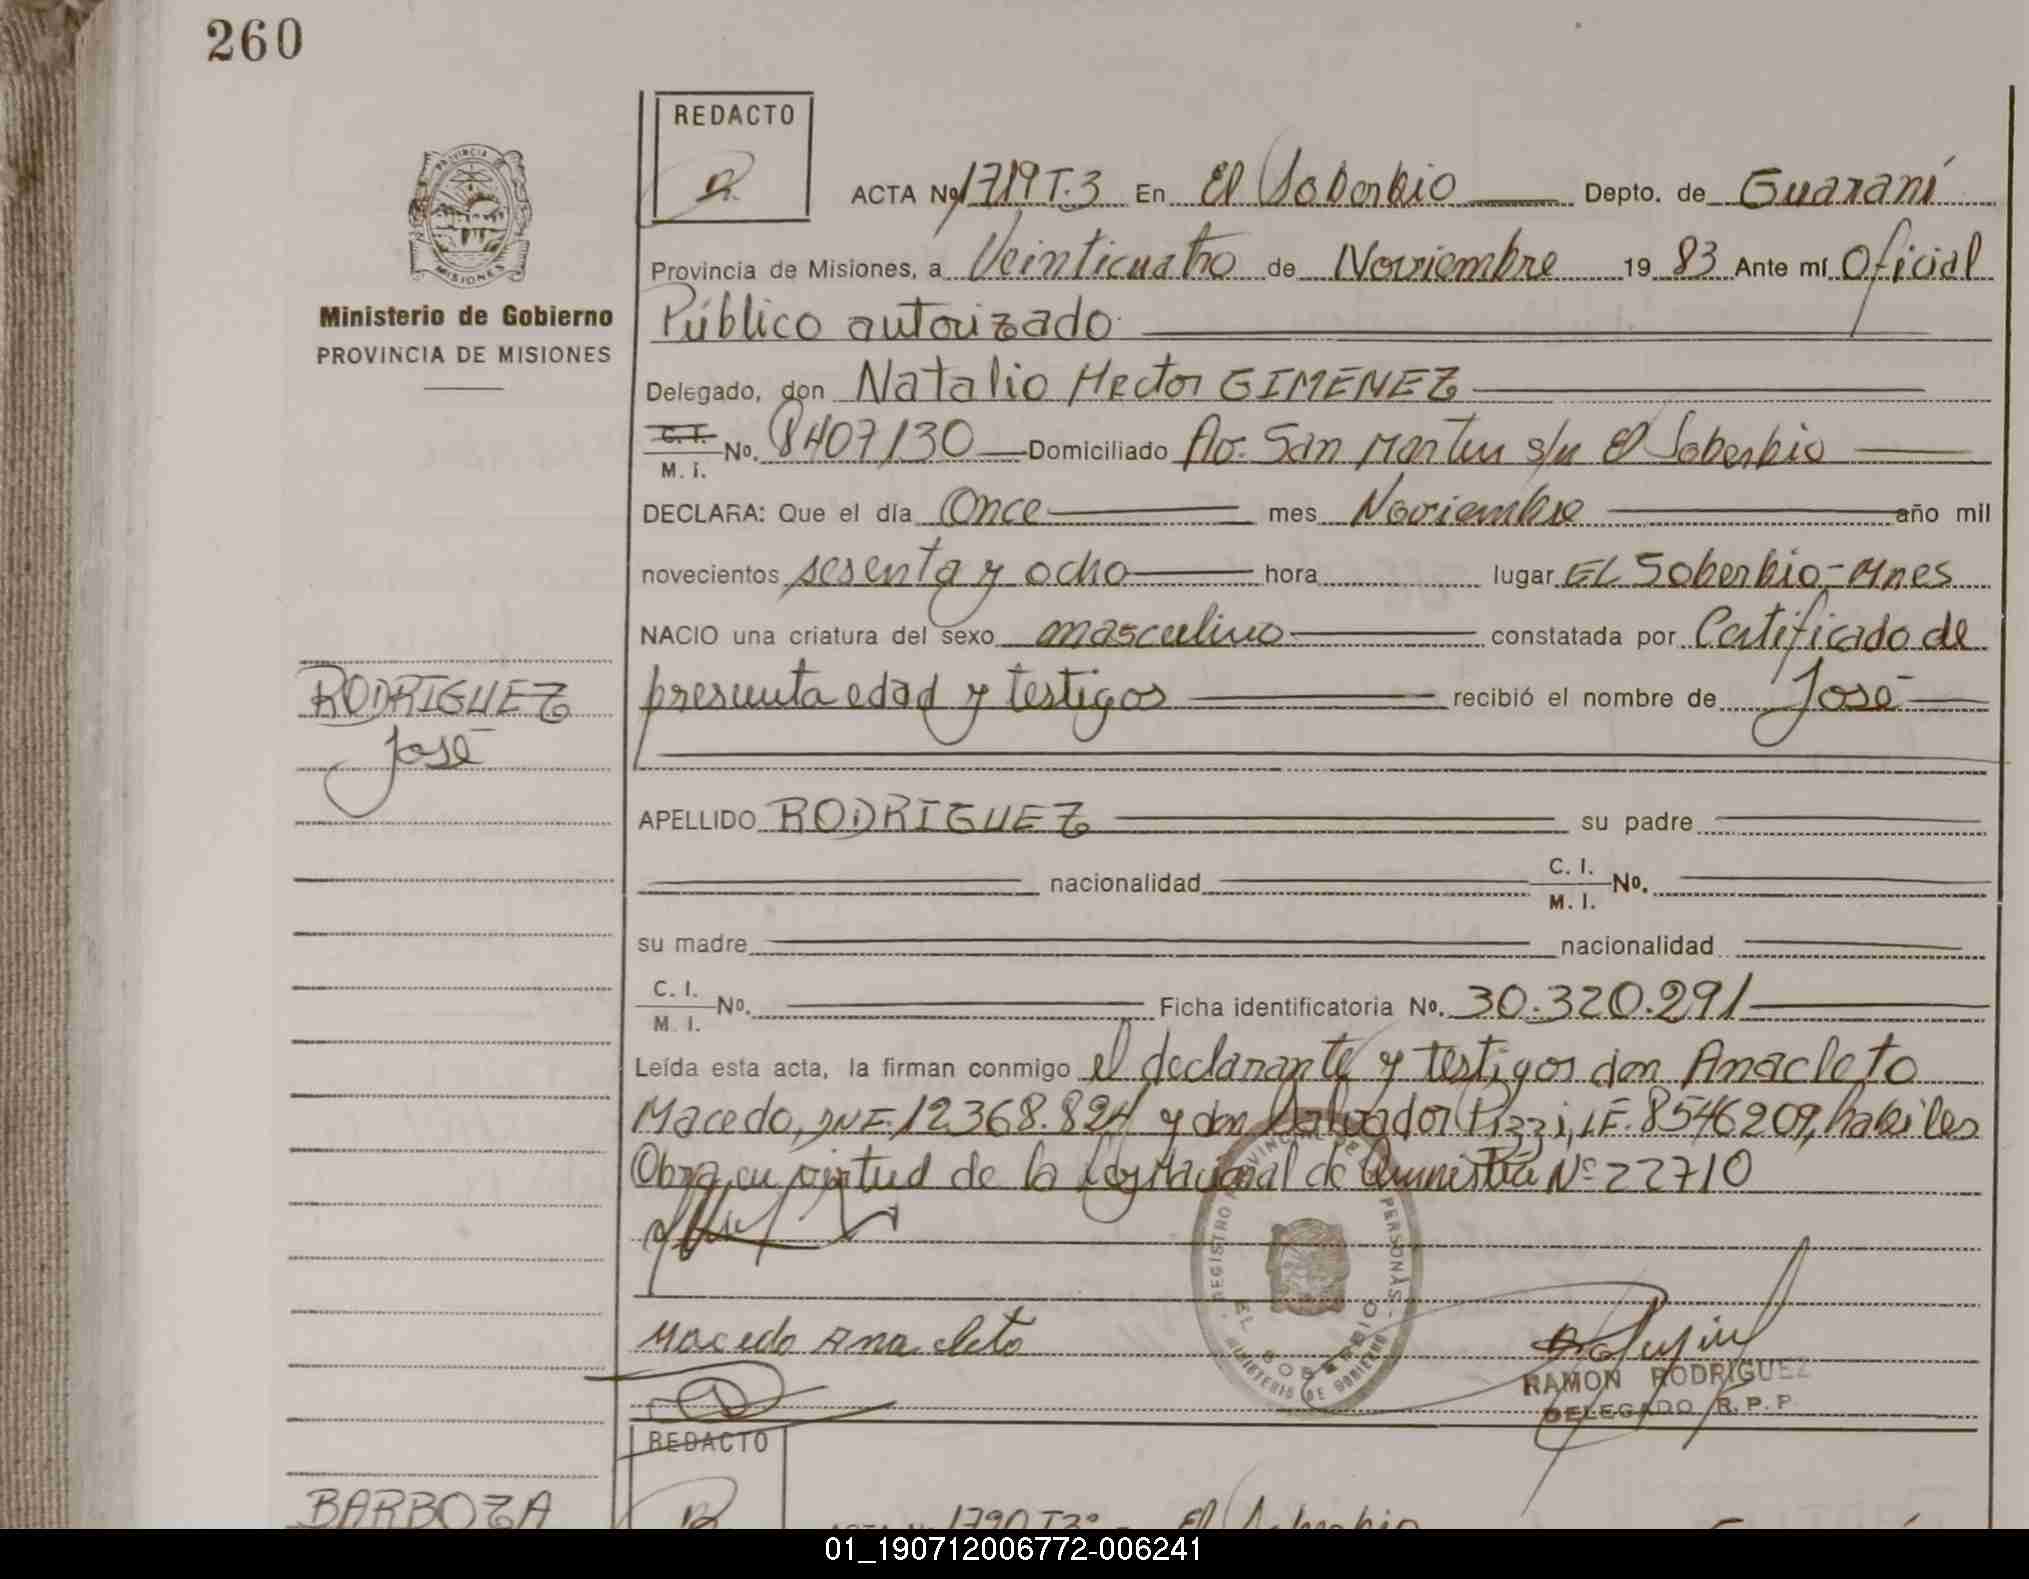 260
REDACTO
PROVINCIA
MISIONES
Ministerio de Gobierno
PROVINCIA DE MISIONES
ACTA Nº 1719 T.3 En El Soberbio Depto. de Guaraní
Provincia de Misiones, a Veinticuatro de Noviembre 19 83 Ante mí Oficial
Público autorizado
Delegado, don Natalio Hector GIMENEZ
C. I. M. I. No. 8407130 Domiciliado Av. San Martin s/n El Soberbio
DECLARA: Que el día Once mes Noviembre año mil
novecientos sesenta y ocho hora lugar EL Soberbio-Mnes
NACIO una criatura del sexo masculino constatada por Certificado de
RODRIGUEZ
José
presunta edad y testigos recibió el nombre de José
APELLIDO RODRIGUEZ su padre
nacionalidad C. I. M. I. No.
su madre nacionalidad
C. I. M. I. No. Ficha identificatoria No. 30.320.291
Leída esta acta, la firman conmigo el declarante y testigos don Anacleto
Macedo, DNI. 12.368.824 y don Salvador Pizzi, LE. 8546209, habiles
Obra en virtud de la Ley Nacional de Amnistía Nº 22710
REGISTRO PROVINCIAL DE PERSONAS
EL SOBERBIO
MINISTERIO DE GOBIERNO
Macedo Anacleto
RAMON RODRIGUEZ
DELEGADO R.P.P
REDACTO
BARBOZA
ACTA No 1790 T3º El Soberbio
01_190712006772-006241